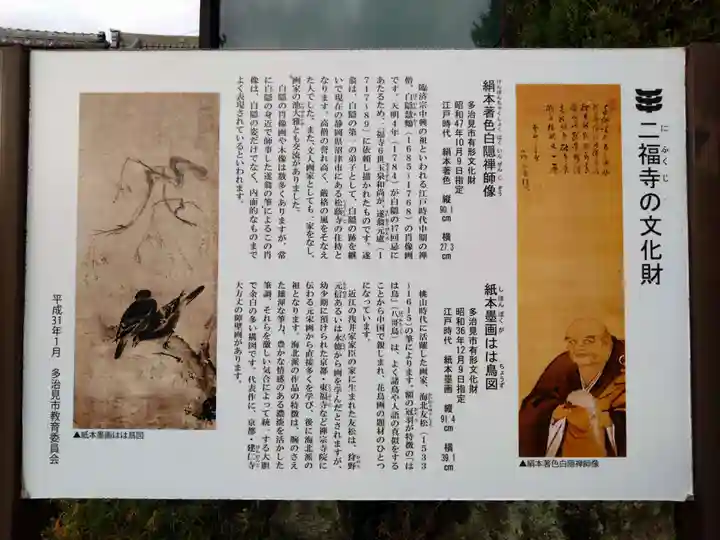 二福寺の文化財
にふくじ
絹本著色白隠禅師像
けんぽんちゃくしょくはくいんぜんじぞう
多治見市有形文化財
昭和47年10月9日指定
江戸時代 絹本著色 縦90.1cm 横27.3cm
臨済宗中興の祖といわれる江戸時代中期の禅
僧、白隠慧鶴（1685-1768）の肖像画
です。天明4年（1784）が白隠の17回忌に
あたるため、二福寺6世玉泉和尚が、遂翁元盧（1
717-1789）に依頼し描かれたものです。遂
翁は、白隠の第一の弟子として、白隠の跡を継
いで現在の静岡県沼津市にある松蔭寺の住持と
なります。高僧の誉れ高く、厳格の風をそなえ
た人でした。また、文人画家としても一家をなし、
画家の池大雅とも交流がありました。
白隠の肖像画や木像は数多くありますが、常
に白隠の身近で師事した遂翁の筆によるこの肖
像は、白隠の姿だけでなく、内面的なものまで
よく表現されているといわれます。
紙本墨画はは鳥図
しほんぼくが ちょうず
多治見市有形文化財
昭和36年12月9日指定
江戸時代 紙本墨画 縦91.4cm 横39.1cm
桃山時代に活躍した画家、海北友松（1533
-1615）の筆によります。額の冠羽が特徴の「は
は鳥」（八哥鳥）は、よく諸鳥や人語の真似をする
ことから中国で親しまれ、花鳥画の題材のひとつ
になっています。
近江の浅井家家臣の家に生まれた友松は、狩野
元信あるいは永徳から画を学んだとされますが、
幼少期に預けられた京都・東福寺など禅宗寺院に
伝わる宋元画から直接多くを学び、後に海北派の
祖となります。海北派の作品の特徴は、腕のさえ
た雄渾な筆力、豊かな情感のある濃淡を活かした
筆調、それらを激しい気合によって統一する大胆
で余白の多い構図です。代表作に、京都・建仁寺
大方丈の障壁画があります。
平成31年1月 多治見市教育委員会
▲紙本墨画はは鳥図
▲絹本著色白隠禅師像